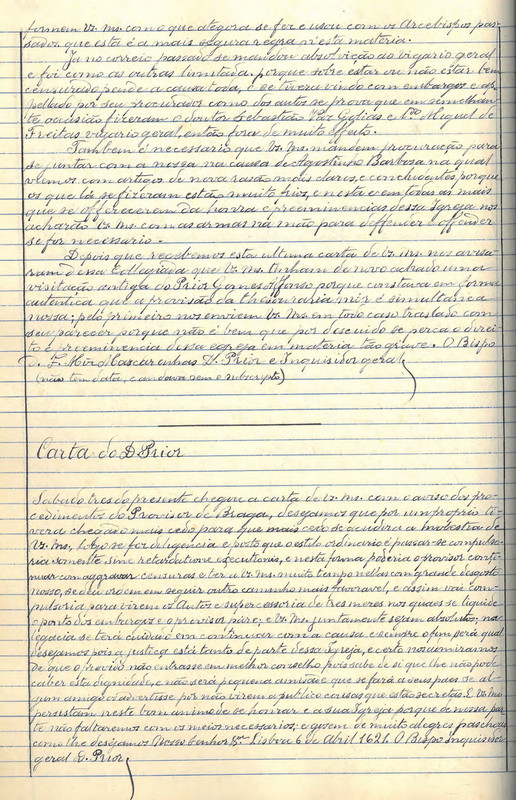 formem Vs. Ms. como que ategora se fez e usou com os Arcebispos pas-
sados que esta é a mais segura regra n'esta materia.
Já no correio passado se mandou absolvição ao vigario geral
e foi como as outras limitada, porque sobre estar ou não estar bem
censurado pende a causa toda, e se tivera vindo com embargos e ap-
pellado por seu procurador como dos autos se prova que em semelhan-
te occasião fizeram o doutor Sebastião Vaz Golias e Miguel de
Freitas vigario geral, então fôra de muito effeito.
Tambem é necessario que Vs. Ms. mandem procuração para
se juntar com a nossa na causa de Agostinho Barbosa na qual
viemos com artigos de nova rasão mais claros, e concludentes, porque
os que lá se fizeram estão muito frios, e nesta e em todas as mais
que se offrecerem da honra e preeminencias dessa Igreja nos
acharão Vs. Ms. com as armas na mão para deffender e offender
se for necessario.
Depois que recebemos esta ultima carta de Vs. Ms. nos avisa-
ram dessa Collegiada que Vs. Ms. tinham de novo achado uma
visitação antiga do Prior Gomes Affonso porque constava em forma
autentica que a provisão da thesouraria mór é simultanea
nossa; pelo primeiro nos enviem Vs. Ms. em todo caso traslado com
seu parecer porque não é bem que por descuido se perca o direi-
to e preeminencia dessa egreja em materia tão grave. O Bispo
D. F. Miz Mascarenhas D. Prior e Inquisidor geral
(não tem data, e andava sem o subscripto)
Carta do D. Prior
Sabado tres do presente chegou a carta de Vs. Ms. com o aviso dos pro-
cedimentos do Provisor de Braga, desejamos que por um proprio ti-
vera chegado mais cedo para que mais cedo se acudira a molestia de
Vs. Ms. Logo se fez deligencia e posto que o estilo ordinario é passar-se compulso-
ria somente sine retardatione executionis, e nesta forma poderia o provisor conti-
nuar com aggravar censuras e ter a Vs. Ms. muito tempo nellas com grande desgosto
nosso, se deu ordem em seguir outro caminho mais favoravel, e assim vai com-
pulsoria para virem os Autos e supercessoria de tres meses nos quaes se liquide
o ponto dos embargos e o provisor páre; e Vs. Ms. juntamente sejam absolutos; na
legacia se terá cuidado em continuar com a causa e sempre o fim será qual
desejamos pois a justiça está tanto de parte dessa Igreja, e certo nos admiramos
de que o Provisor não entrasse em melhor conselho pois sabe de si que lhe não pode
caber esta dignidade, e não será pequena amisade que se fará a seus paes se al-
gum amigo o advertisse por não virem a publico cousas que estão secretas. E Vs. Ms.
persistam neste bom animo de se honrar e a sua Igreja porque de nossa par-
te não faltaremos com os meios necessarios; e gosem de muito alegres paschoas
como lhe desejamos Nosso Senhor &ra. Lisboa 6 de Abril 1621. O Bispo Inquisidor
geral D. Prior